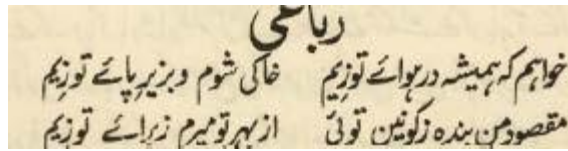 رباعی
خواہم کہ ہمیشہ در ہوائے تو زیم خاکی شوم و بزیر پائے تو زیم
مقصود من بندہ زکونین توئی از بہر تو میرم زبرائے تو زیم